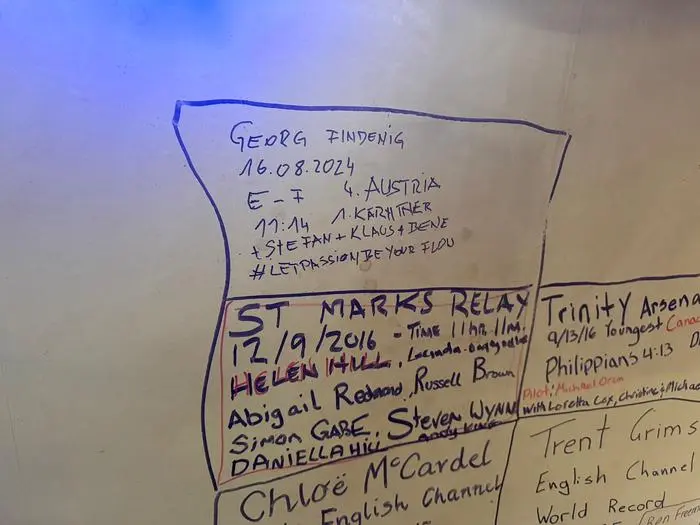 GEORG FINDENIG
16.08.2024
E - F 4. AUSTRIA
11:14 1. KÄRNTNER
+ STEFAN + KLAUS + BENE
#LETPASSIONBEYOURFLOW
ST MARKS RELAY
12/9/2016 - TIME 11HR 11M.
HELEN HILL, Lucinda
Abigail Redmond, Russell Brown
Simon GABE, STEVEN WYNN
DANIELLA HILL Andy King
Trinity Arsena
9/13/16 Youngest Canac
Philippians 4:13
Pilot: Michael Oram
with Loretta Cox, Christine & Michae
Chloë McCardel
English Channel
Trent Grims
English Channel
World Record
Ben Freem